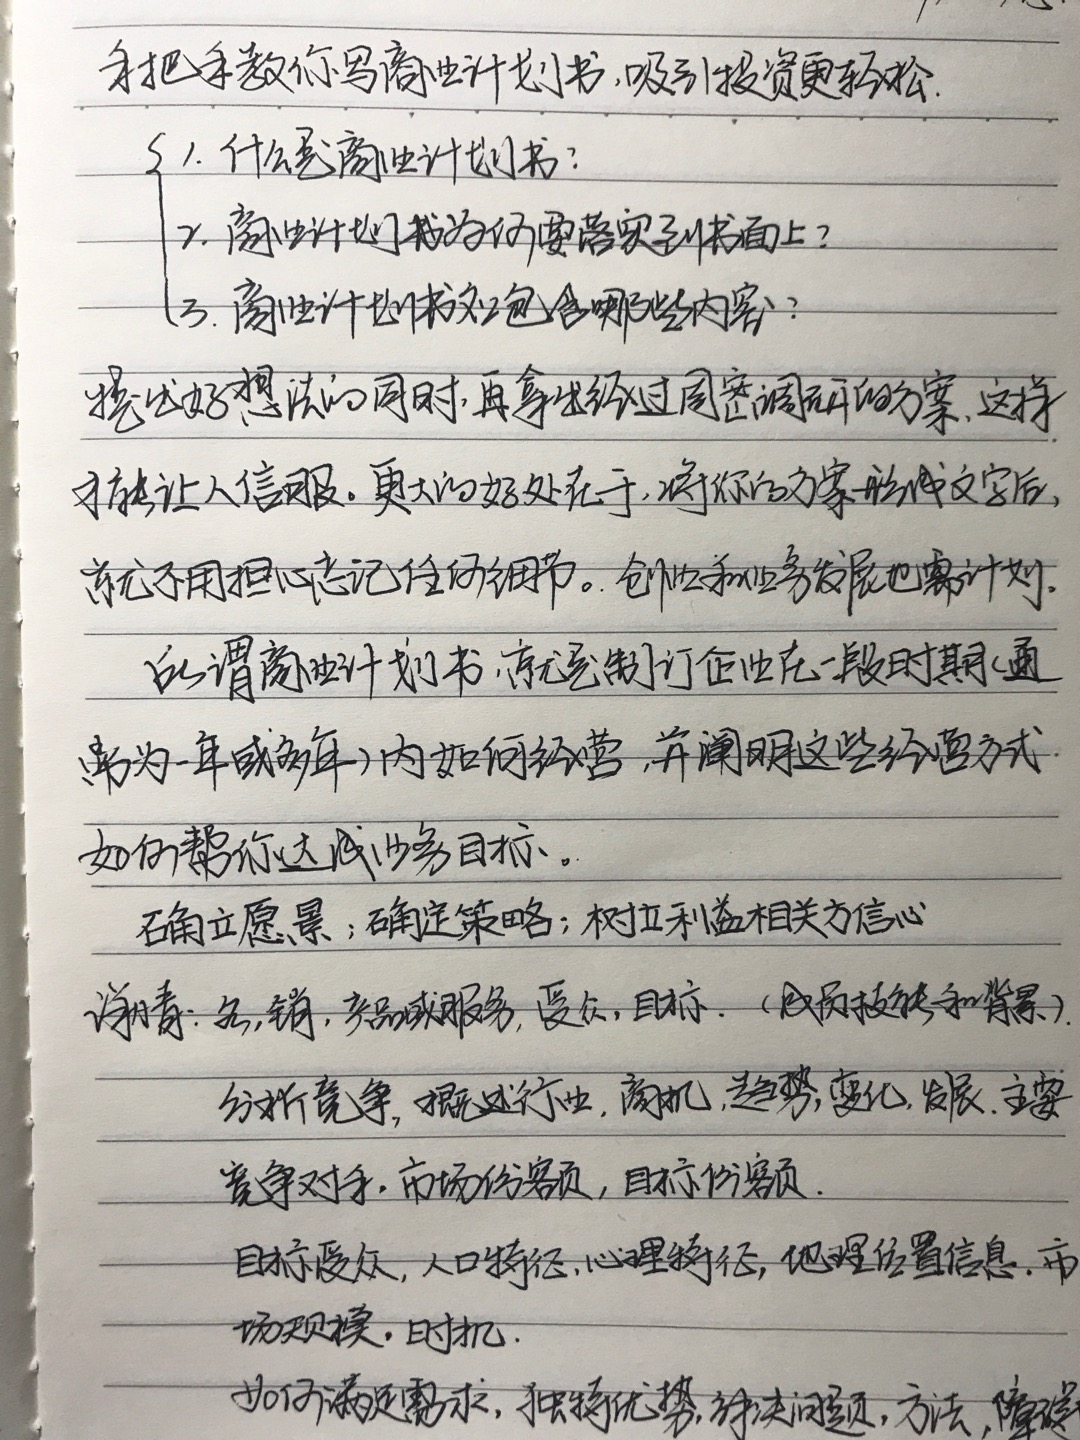 手把手教你写商业计划书,吸引投资更轻松.
1. 什么是商业计划书?
2. 商业计划书为何要落实到书面上?
3. 商业计划书应包含哪些内容?
提出好想法的同时,再拿出经过周密调研的方案、这样
才能让人信服。更大的好处在于,将你的方案形成文字后,
就不用担心忘记任何细节。创业和业务发展也需计划.
所谓商业计划书,就是制订企业在一段时期(通
常为一年或多年)内如何经营,并阐明这些经营方式
如何帮你达成业务目标。
确立愿景;确定策略;树立利益相关方信心
谢青:名,销,产品或服务,受众,目标.(成员技能和背景).
分析竞争,概述行业,商机,趋势,变化,发展.主要
竞争对手.市场份额,目标份额.
目标受众,人口特征,心理特征,地理位置信息.市
场规模.时机.
如何满足需求,独特优势,解决问题,方法,障碍